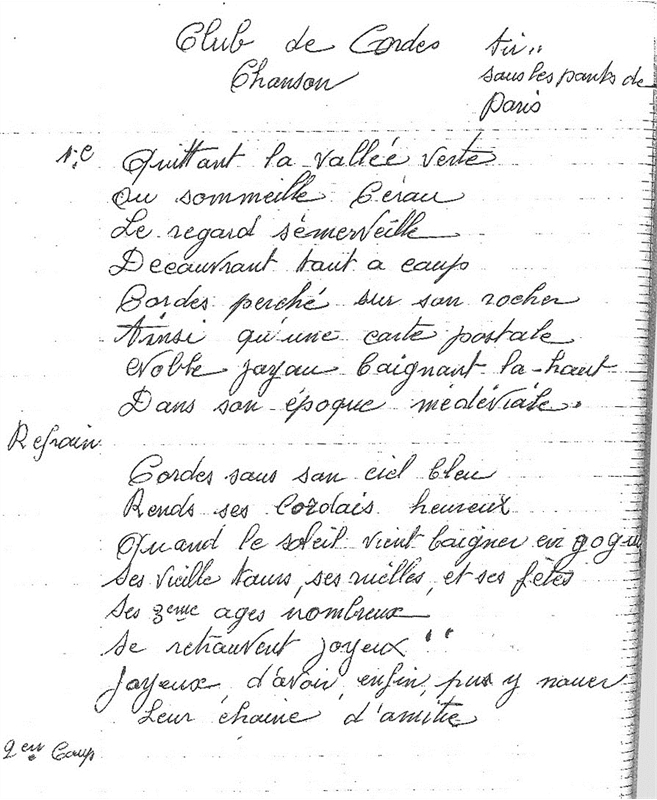 Club de Cordes
Chanson
Air..
sous les ponts de
Paris
1.e Quittant la vallée verte
Ou sommeille Cérou
Le regard s'émerveille
Decouvrant tout a coup
Cordes perché sur son rocher
Ainsi qu'une carte postale
Noble joyau baignant la-haut
Dans son époque médéviale.
Refrain
Cordes sous son ciel bleu
Rends ses Cordais heureux
Quand le soleil vient baigner en gogu
Ses vieille tours, ses ruelles, et ses fêtes
Ses 3eme ages nombreux
Se retrouvent joyeux
Joyeux, d'avoir, enfin, pus y nouer
Leur chaine d'amitie
2em Coup